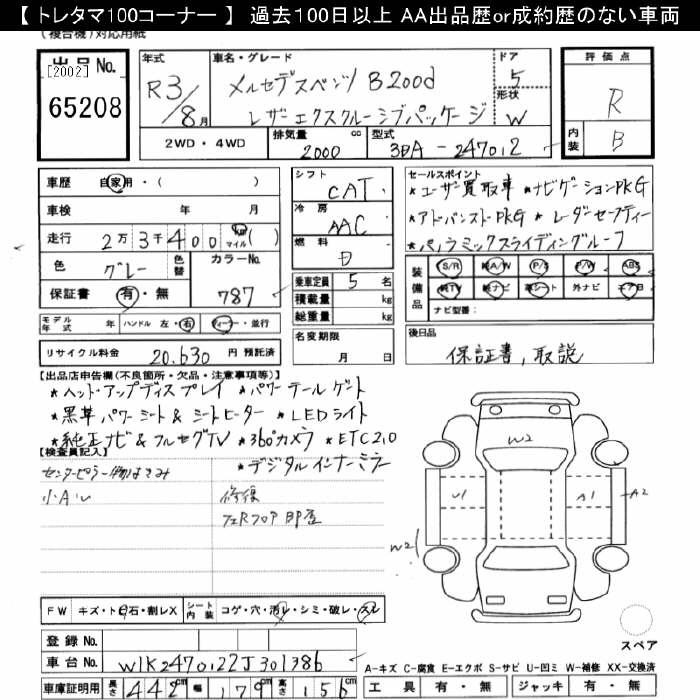 【 トレタマ100コーナー 】 過去100日以上 AA出品歴or成約歴のない車両
(複合機)対応用紙
出品No.
[2002]
65208
年式
R3/8月
車名・グレード
メルセデスベンツ B200d
レザーエクスクルーシブパッケージ
ドア
5
形状
W
評価点
R
内装
B
2WD・4WD
排気量 cc
2000
型式
3DA-247012
車歴 自家用・( )
車検 年 月
走行 2万3千400 km マイル( )
色 グレー 色替 カラーNo. 787
保証書 有・無
シフト CAT
冷房 AAC
燃料 D
乗車定員 5 名
積載量 kg
総重量 kg
セールスポイント
★ユーザー買取車 ★ナビゲーションPKG
★アドバンストPKG ★レーダーセーフティー
★パノラミックスライディングルーフ
装備品 S/R 純A/W P/S P/W ABS
純TV 純ナビ 革シート 外ナビ エアB
ナビ型番:
モデル年式 年 ハンドル 左・右 ディーラー・並行
リサイクル料金 20,630 円 預託済
名変期限
月 日
後日品
保証書,取説
【出品店申告欄(不良箇所・欠品・注意事項等)】
★ヘッドアップディスプレイ ★パワーテールゲート
★黒革パワーシート&シートヒーター ★LEDライト
★純正ナビ&フルセグTV ★360°カメラ ★ETC2,0
★デジタルインナーミラー
【検査員記入】
センターピラー
小A,U
修復
W2
U1
A1
A2
W2
スペア
FW キズ・ト石・割レX
シート内装 コゲ・穴・汚レ・シミ・破レ・スレ
登録No.
車台No. W1K2470122J301386
車庫証明用 長さ 442cm 幅 179cm 高さ 156cm
A-キズ C-腐食 E-エクボ S-サビ U-凹ミ W-補修 XX-交換済
工具 有・無 ジャッキ 有・無